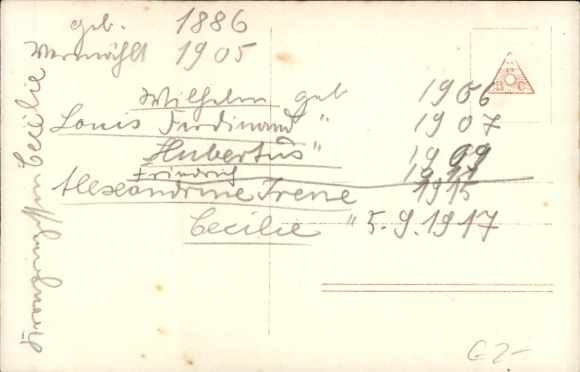 geb. 1886
Vermählt 1905
Wilhelm geb 1906
Louis Ferdinand " 1907
Hubertus " 1909
Friedrich 1911
Alexandrine Irene 1915
Cecilie " 5.9.1917
Cecilie